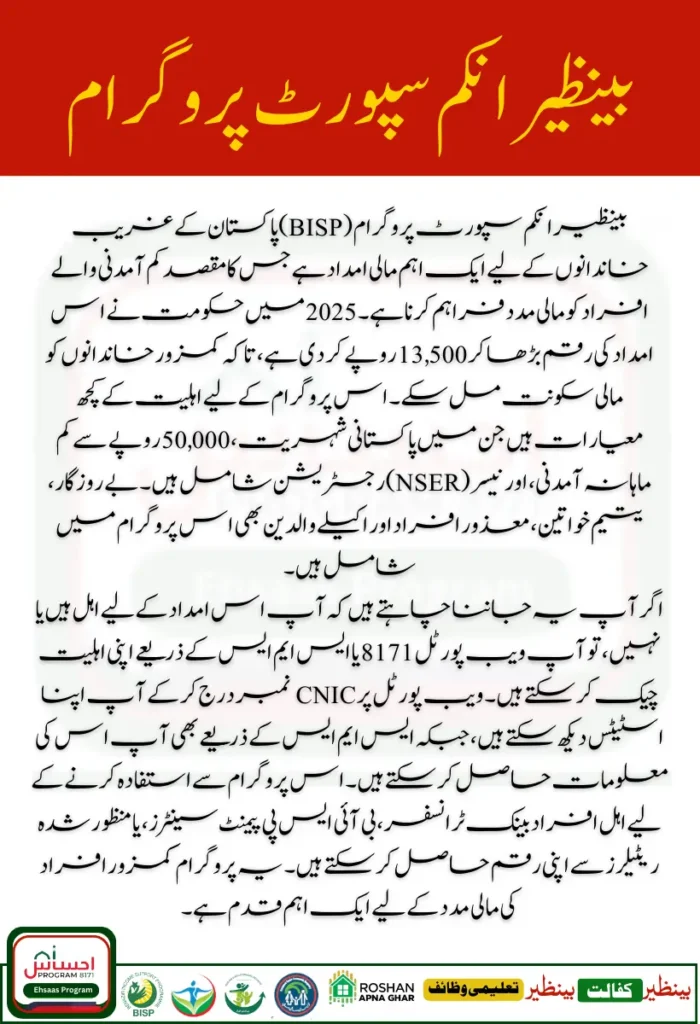 بینظیر انکم سپورٹ پروگرام
بینظیر انکم سپورٹ پروگرام (BISP) پاکستان کے غریب
خاندانوں کے لیے ایک اہم مالی امداد ہے جس کا مقصد کم آمدنی والے
افراد کو مالی مدد فراہم کرنا ہے۔ 2025 میں حکومت نے اس
امداد کی رقم بڑھا کر 13,500 روپے کر دی ہے، تاکہ کمزور خاندانوں کو
مالی سکونت مل سکے۔ اس پروگرام کے لیے اہلیت کے کچھ
معیارات ہیں جن میں پاکستانی شہریت، 50,000 روپے سے کم
ماہانہ آمدنی، اور نیسر (NSER) رجسٹریشن شامل ہیں۔ بے روزگار،
یتیم خواتین، معذور افراد اور اکیلے والدین بھی اس پروگرام میں
شامل ہیں۔
اگر آپ یہ جاننا چاہتے ہیں کہ آپ اس امداد کے لیے اہل ہیں یا
نہیں، تو آپ ویب پورٹل 8171 یا ایس ایم ایس کے ذریعے اپنی اہلیت
چیک کر سکتے ہیں۔ ویب پورٹل پر CNIC نمبر درج کر کے آپ اپنا
اسٹیٹس دیکھ سکتے ہیں، جبکہ ایس ایم ایس کے ذریعے بھی آپ اس کی
معلومات حاصل کر سکتے ہیں۔ اس پروگرام سے استفادہ کرنے کے
لیے اہل افراد بینک ٹرانسفر، بی آئی ایس پی پیمنٹ سینٹرز، یا منظور شدہ
ریٹیلرز سے اپنی رقم حاصل کر سکتے ہیں۔ یہ پروگرام کمزور افراد
کی مالی مدد کے لیے ایک اہم قدم ہے۔
احساس
PROGRAM 8171
Ehsaas Program
BISP
ROSHAN
APNA GHAR
بینظیر کفالت
بینظیر تعلیمی وظائف